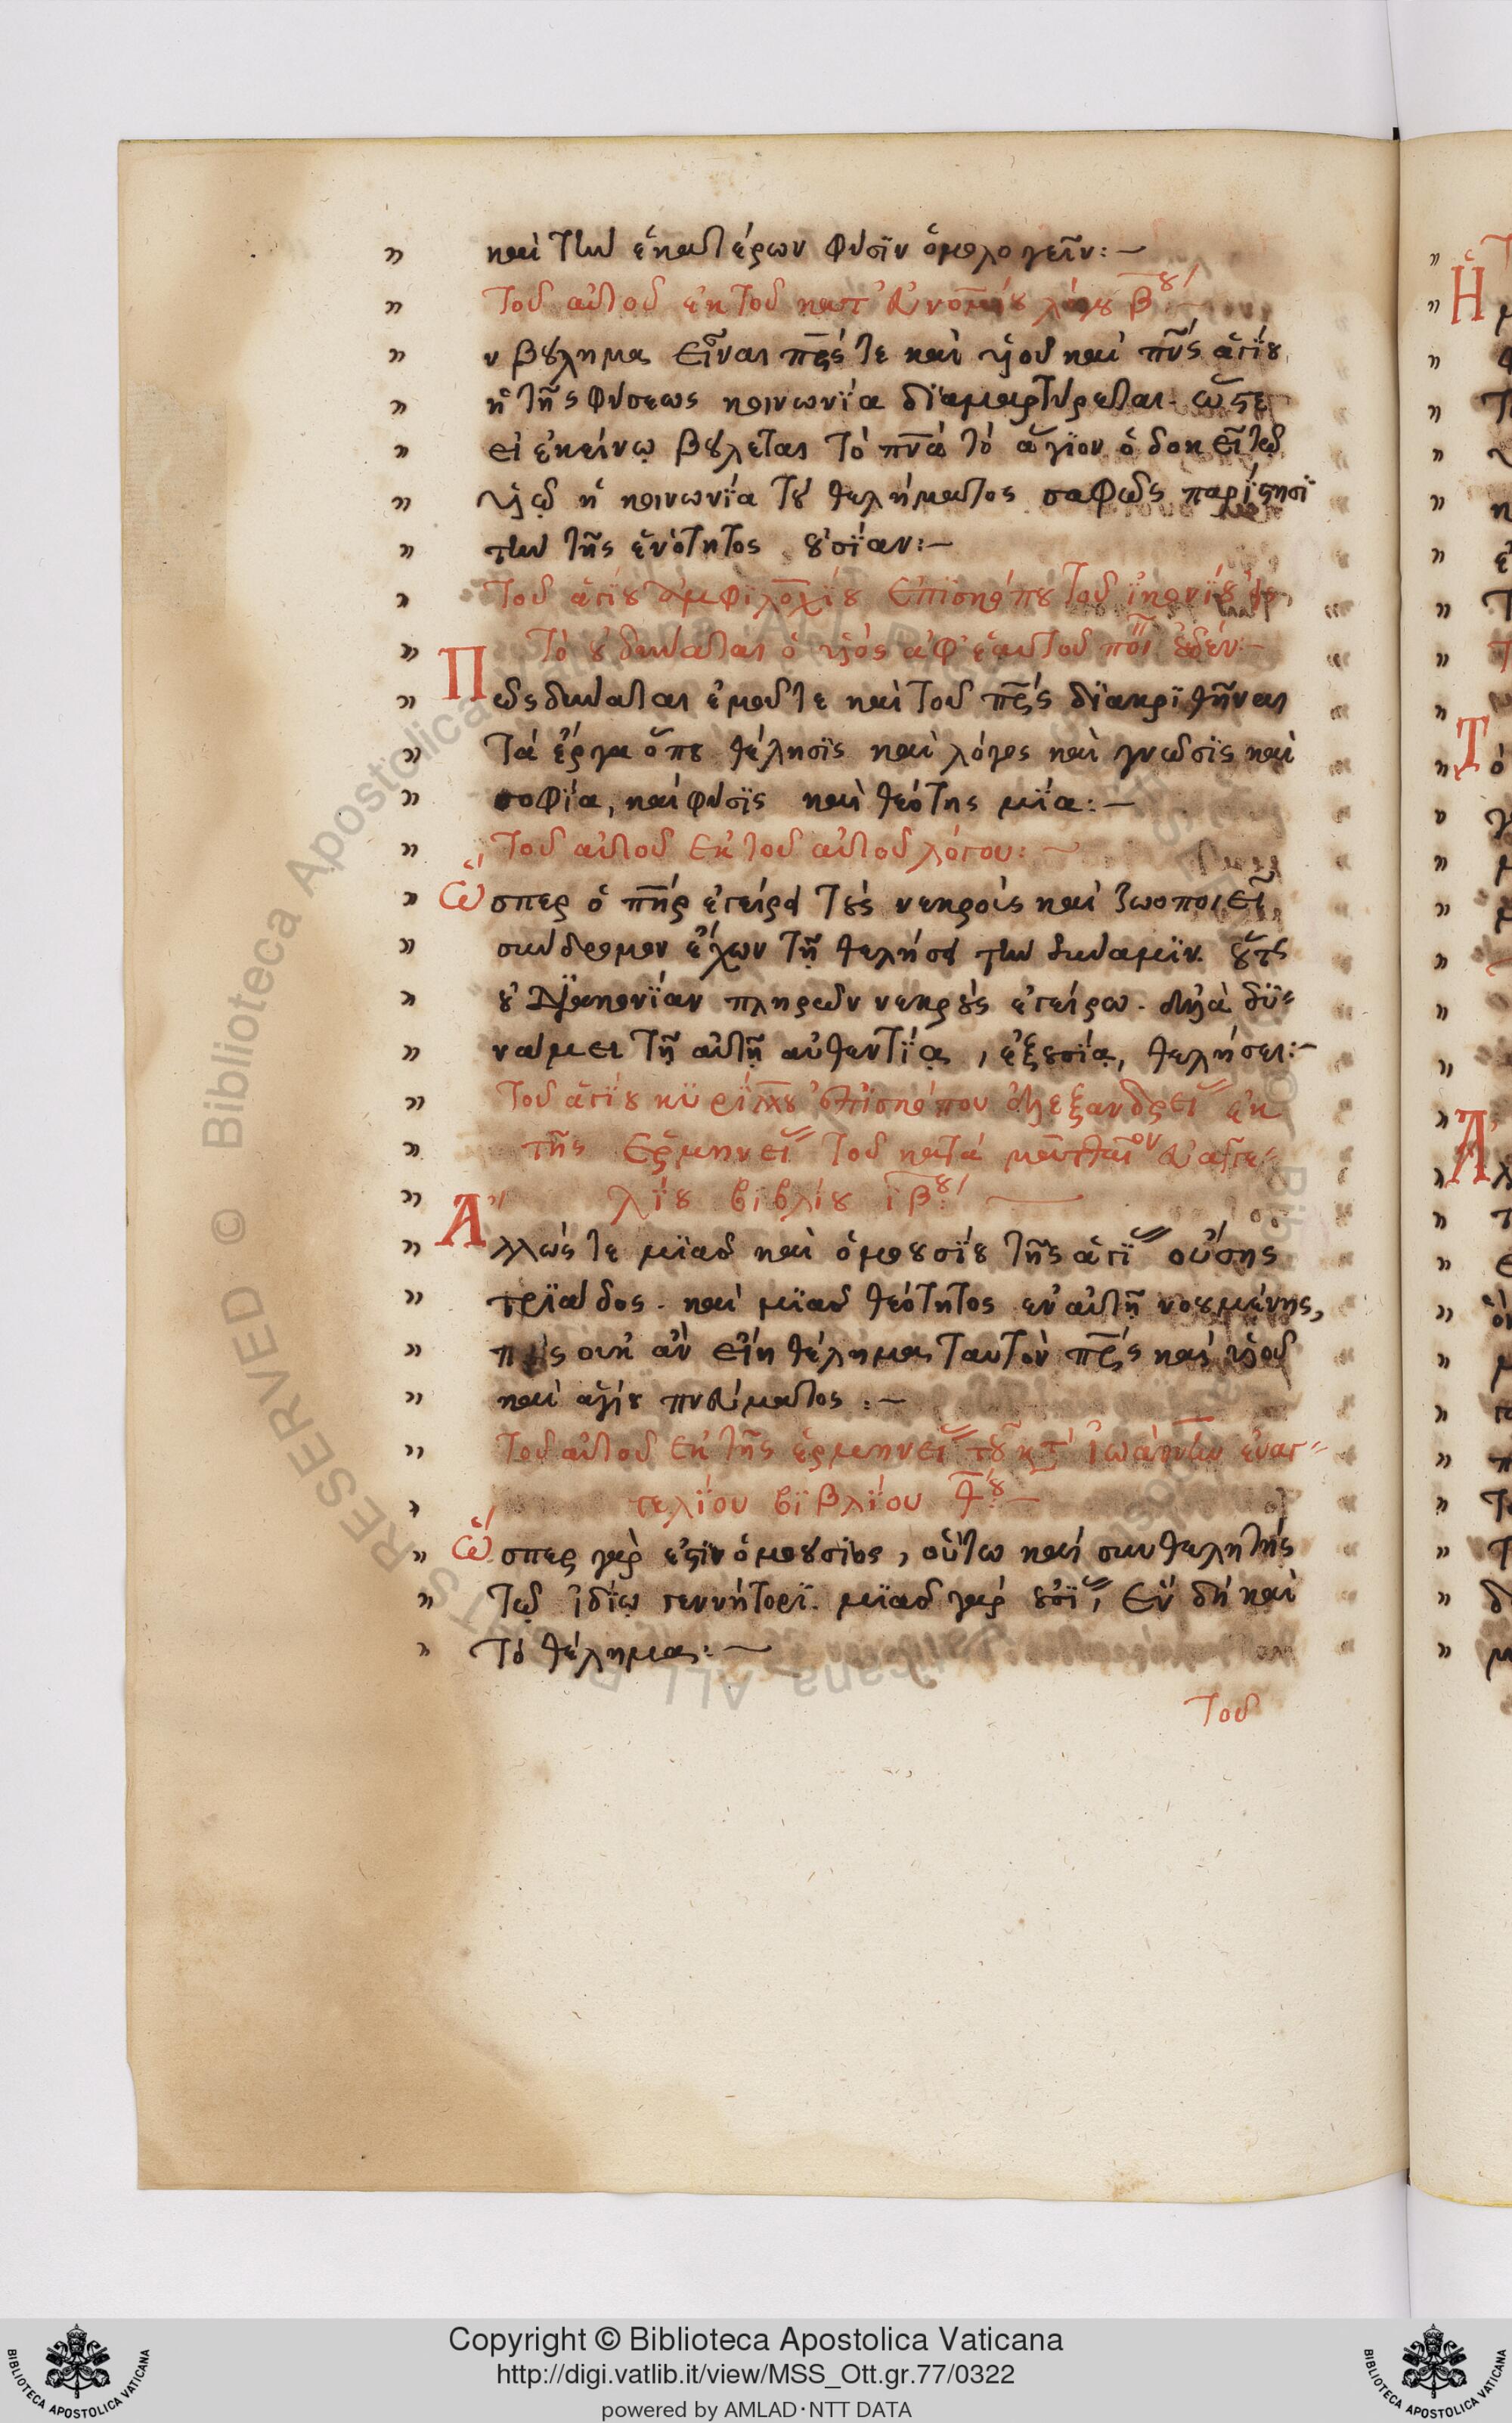 καὶ τὴν ἑκατέρων φύσϊν ὁμολογεῖν:—
Τοῦ αὐτοῦ ἐκ τοῦ κατ' εὐνομίου λόγου β̅ου
ν βούλημα εἶναι πρ̅ς τε καὶ υἱοῦ καὶ πν̅ς ἁγίου
ἡ τῆς φύσεως κοινωνΐα δϊαμαρτύρεται. ὥστε
εἰ ἐκείνῳ βούλεται τὸ πν̅α τὸ ἅγϊον ὃ δοκεῖ τῷ
υἱῷ ἡ κοινωνΐα τοῦ θελήματος σαφῶς παρΐστησϊ
τὴν τῆς ἑνότητος οὐσΐαν:—
Τοῦ ἁγΐου ἀμφϊλοχΐου ἐπϊσκόπου τοῦ ἰκονΐου
Τὸ οὐ δύναται ὁ υἱὸς ἀφ' ἑαυτοῦ ποι οὐδέν:—
Πῶς δύναται ἐμοῦ τε καὶ τοῦ πρ̅ς δϊακρϊθῆναι
τὰ ἔργα ὅπου θέλησϊς καὶ λόγος καὶ γνῶσϊς καὶ
σοφΐα, καὶ φύσϊς καὶ θεότης μΐα:—
Τοῦ αὐτοῦ ἐκ τοῦ αὐτοῦ λόγου:—
Ὥσπερ ὁ πη̅ρ ἐγείρει τοὺς νεκροὺς καὶ ζωοποιεῖ
σύνδρομον ἔχων τῇ θελήσει τὴν δύναμϊν. οὕτως
οὐ διακονΐαν πληρῶν νεκροὺς ἐγείρω. ἀλλὰ δϋ-
νάμει τῇ αὐτῇ αὐθεντΐᾳ, ἐξουσίᾳ, θελήσει:—
Τοῦ ἁγΐου κϋρΐλλου ἐπϊσκόπου ἀλεξανδρείας ἐκ
τῆς Ἑρμηνείας τοῦ κατὰ ματθαῖον εὐαγγε-
λΐου βϊβλίου ι̅β̅ου
Ἄλλως τε μϊᾶς καὶ ὁμοουσΐου τῆς ἁγΐας οὔσης
τρϊάδος. καὶ μϊᾶς θεότητος ἐν αὐτῇ νοουμένης,
πῶς οὐκ ἂν εἴη θέλημα ταυτὸν πρ̅ς καὶ υἱοῦ
καὶ ἁγίου πνεύματος:—
Τοῦ αὐτοῦ ἐκ τῆς ἑρμηνείας τοῦ κατὰ ἰωάννην εὐαγ-
γελΐου βϊβλΐου θ̅ου
Ὥσπερ γάρ ἐστϊν ὁμοούσϊος, οὕτω καὶ συνθελητὴς
τῷ ἰδΐῳ γεννήτορϊ. μϊᾶς γὰρ οὐσΐας, ἓν δὴ καὶ
τὸ θέλημα:—
Τοῦ
Copyright © Biblioteca Apostolica Vaticana
http://digi.vatlib.it/view/MSS_Ott.gr.77/0322
powered by AMLAD·NTT DATA